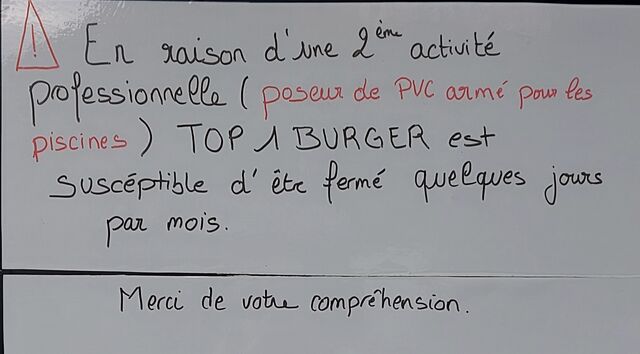 ! En raison d'une 2ème activité
professionnelle (poseur de PVC armé pour les
piscines) TOP 1 BURGER est
suscéptible d'être fermé quelques jours
par mois.
Merci de votre compréhension.